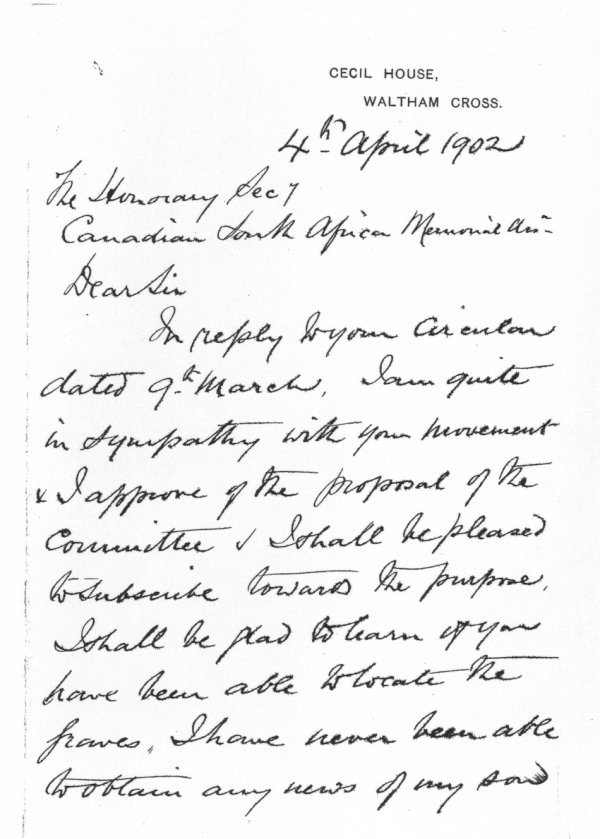 CECIL HOUSE,
WALTHAM CROSS.
4th April 1902
The Honorary Secy
Canadian South African Memorial Assn
Dear Sir
In reply to your Circular
dated 9th March, I am quite
in sympathy with your movement
& I approve of the proposal of the
Committee & I shall be pleased
to subscribe towards the purpose.
I shall be glad to learn if you
have been able to locate the
graves, I have never been able
to obtain any news of my son